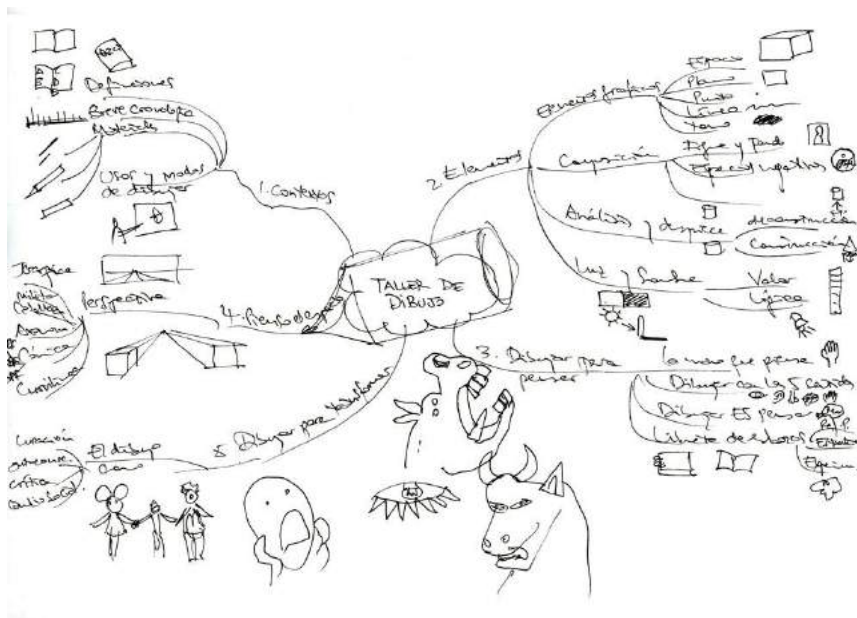 TALLER DE
DIBUJO
1. Contextos
Definiciones
Breve Cronología
Materiales
Usos y modos
de dibujar
2. Elementos
Elementos gráficos
Espacio
Plano
Punto
Línea
Tono
Composición
Figura y fondo
Espacios negativos
Análisis y despiece
deconstrucción
Construcción
Luz y Sombra
Valor
Línea
3. Dibujar para
pensar
la mano que piensa
Dibujar con los 5 sentidos
Dibujar ES pensar
Libreta de
4.
Perspectiva
Cónica
5. Dibujar para transformar
El dibujo
como
Curación
crítica